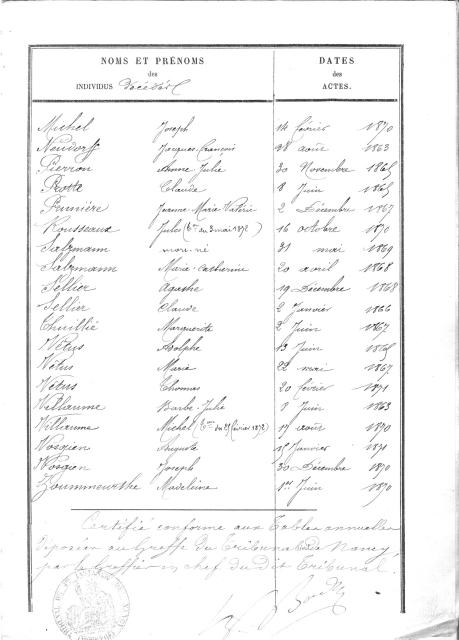 NOMS ET PRÉNOMS DATES
des des
INDIVIDUS Décédés ACTES.
Michel Joseph 14 février 1870
Neudorff Jacques François 28 août 1863
Pierron Anne Julie 30 Novembre 1865
Protte Claude 8 Juin 1865
Prunière Jeanne Marie Valérie 2 Décembre 1867
Rousseaux Jules (tr. du 3 mai 1872) 16 octobre 1870
Salzmann mort-né 31 mai 1869
Salzmann Marie Catherine 20 avril 1868
Sellier Agathe 19 Décembre 1868
Sellier Claude 2 Janvier 1866
Thuillié Marguerite 2 Juin 1867
Vétus Adolphe 13 Juin 1865
Vétus Marie 22 mai 1867
Vétus Thomas 20 février 1871
Villaume Barbe Julie 1 Juin 1863
Villiaume Michel (tr. du 25 février 1872) 17 août 1870
Vosgien Auguste 15 Janvier 1871
Vosgien Joseph 30 Décembre 1870
Madeleine 1er Juin 1870
Certifié conforme aux Tables annuelles
déposées au Greffe du Tribunal de Nancy,
par le Greffier en chef du dit Tribunal.